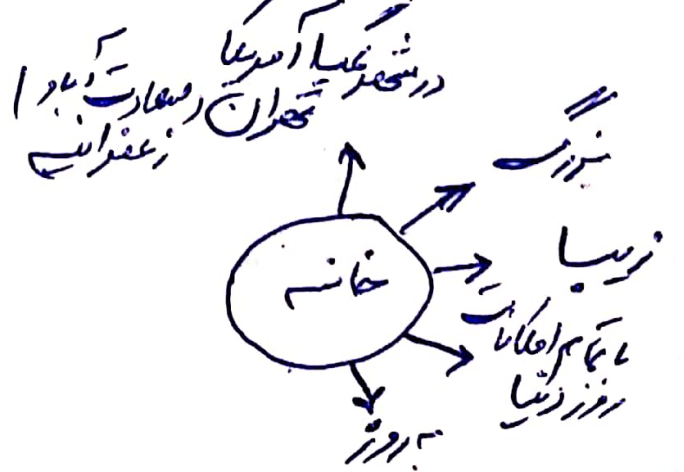 در شهر نمیبیا آمریکا
تهران، سعادت آباد /
زعفرانیه
بزرگ
زیبا
خانه
با تمام امکانات
روز دنیا
به روز